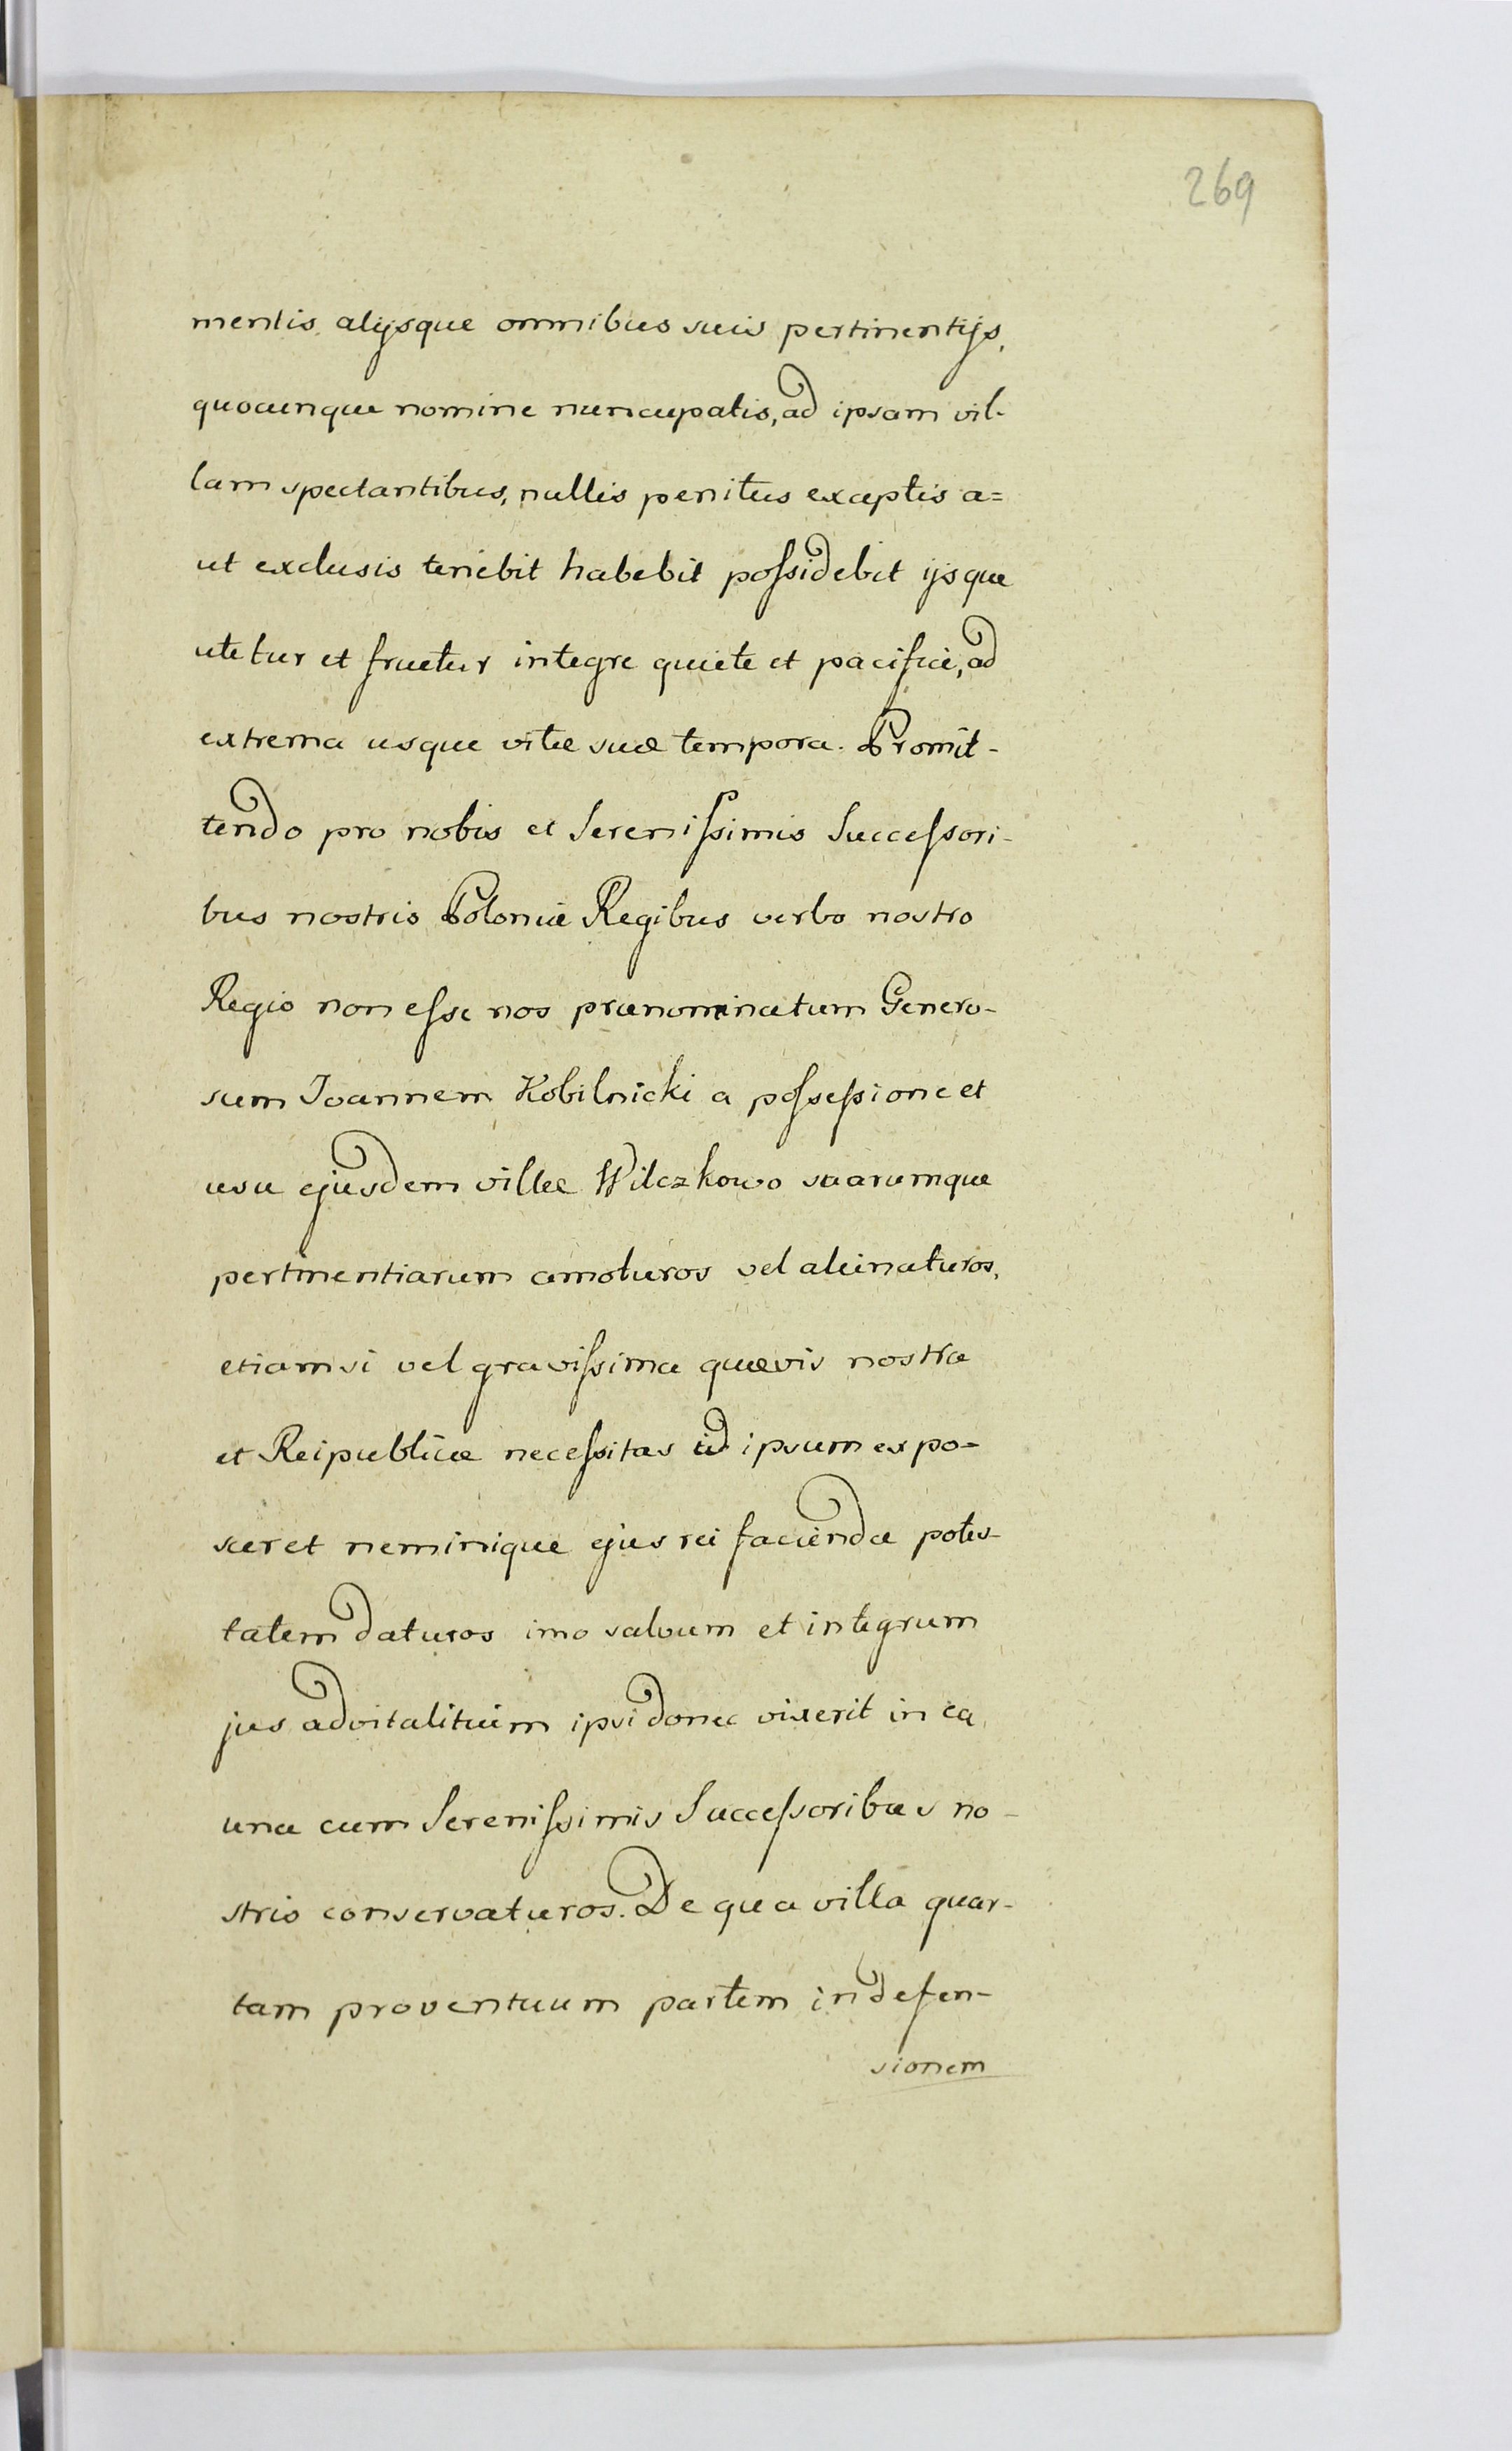 269
mentis alijsque omnibus suis pertinentijs,
quocunque nomine nuncupatis, ad ipsam vil-
lam spectantibus, nullis penitus exceptis a=
ut exclusis tenebit habebit poſsidebit ijsque
utetur et fruetur integre quiete et pacifice, ad
extrema usque vitæ suæ tempora. Promit-
tendo pro nobis et Sereniſsimis Succeſsori-
bus nostris Poloniæ Regibus verbo nostro
Regio non eſse nos prænominatum Genero-
sum Joannem Kobilnicki a poſseſsione et
usu ejusdem villæ Wilczkowo suarumque
pertinentiarum amoturos vel alienaturos,
etiamsi vel graviſsima quævis nostra
et Reipublicæ neceſsitas id ipsum expo-
sceret neminique ejus rei faciendæ potes-
tatem daturos imo salvum et integrum
jus advitalitium ipsi donec vixerit in ea,
una cum Sereniſsimis Succeſsoribus no-
stris conservaturos. De qua villa quar-
tam proventuum partem in defen-
sionem